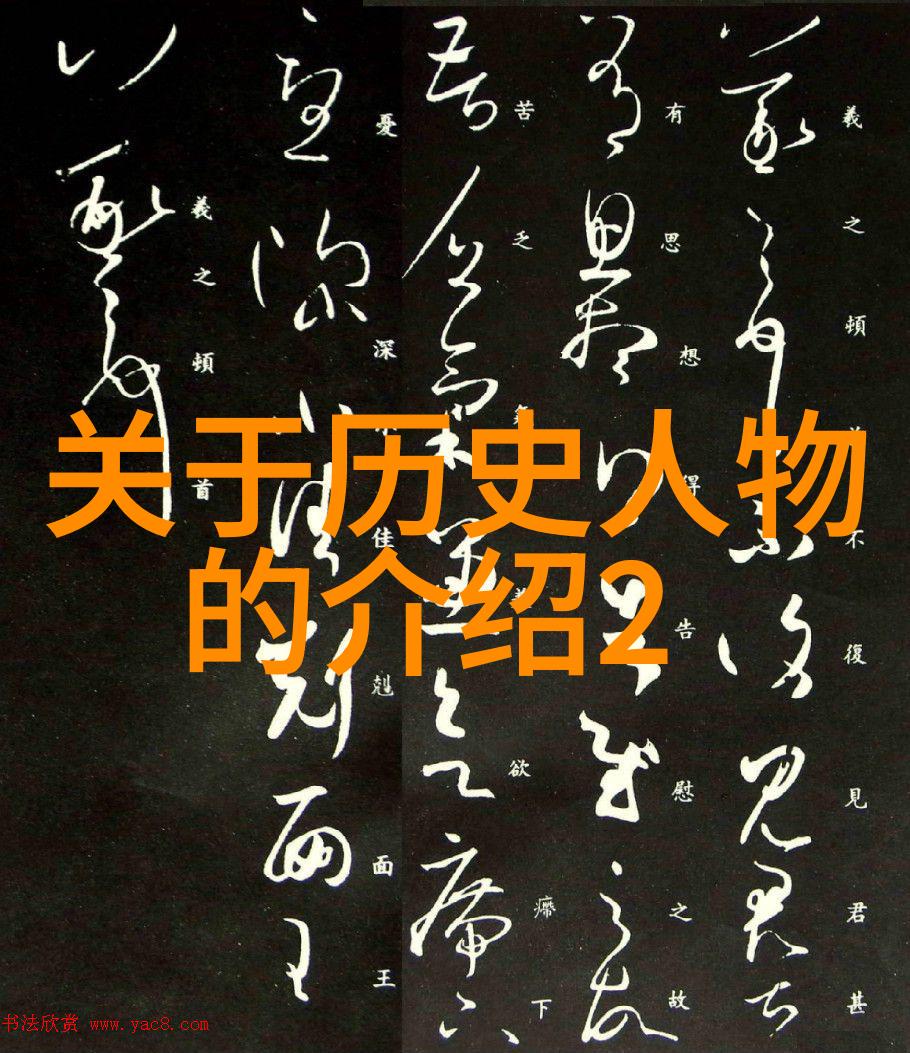 羲之頓首不復見君甚
有思想得告慰之故
苦乏氣欲㿃下
憂深佳剋面王
羲之頓首
关于历史人物
的介绍2
书法欣赏 www.yac8.com